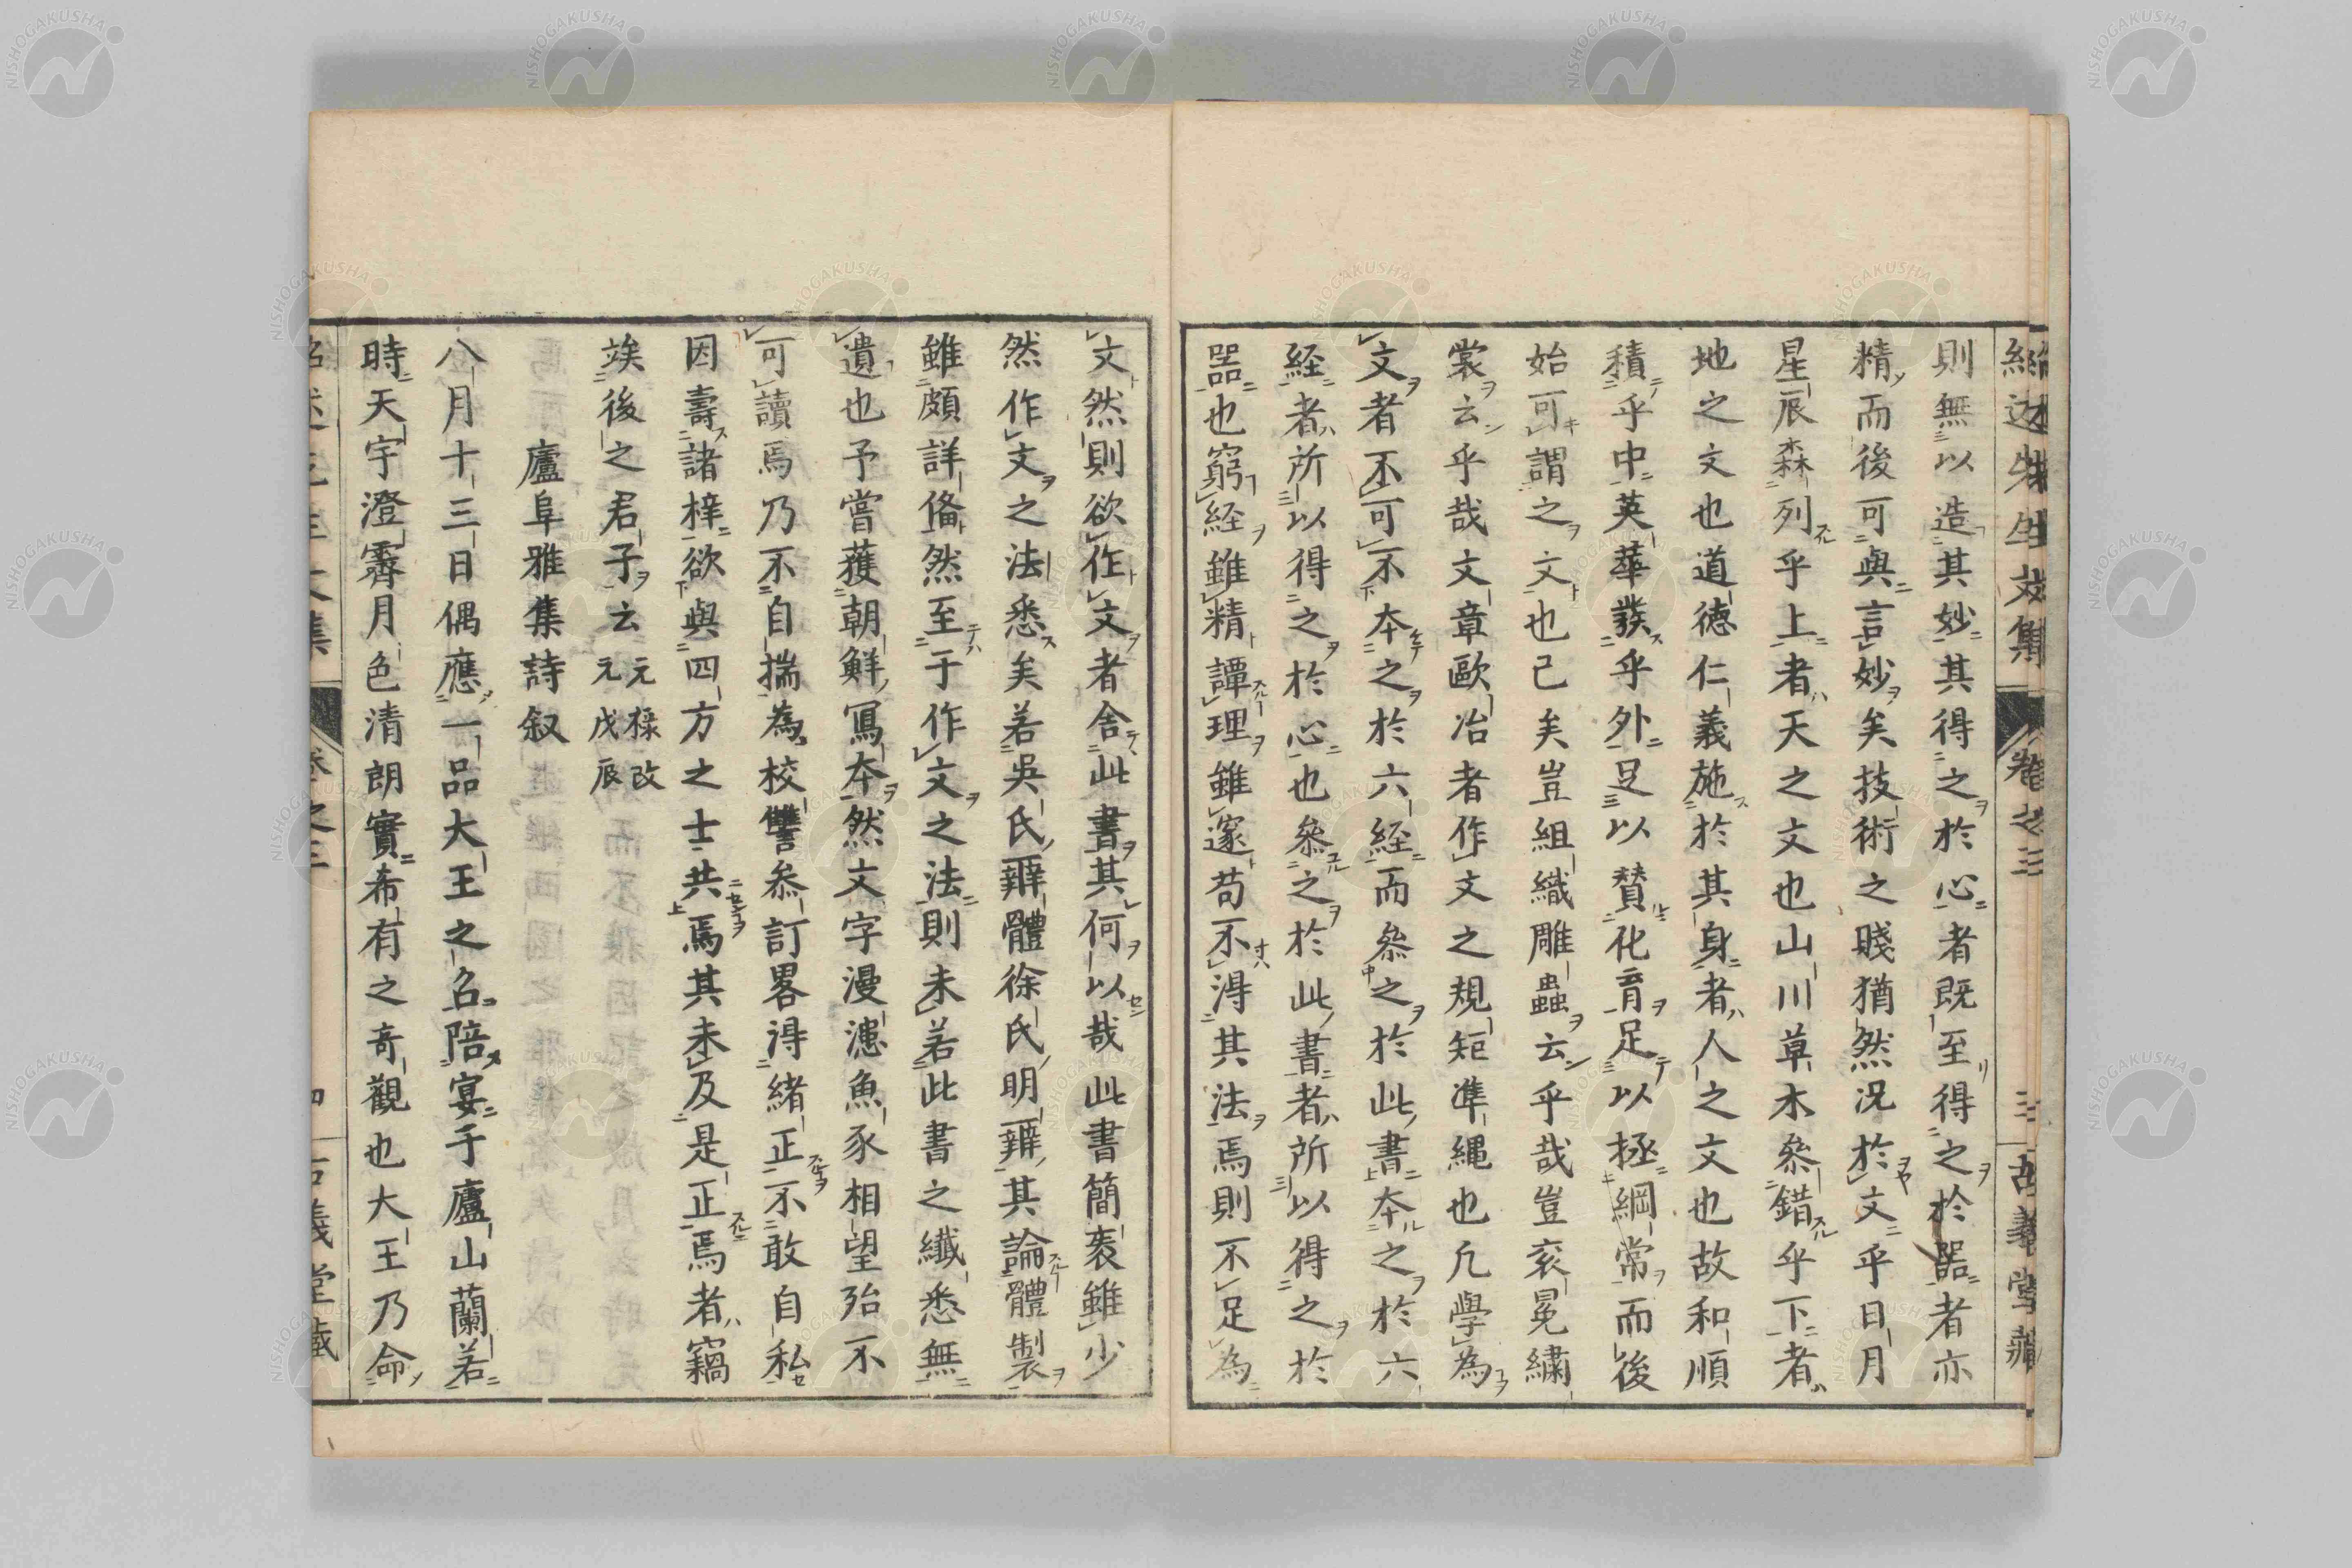 紹述先生文集 卷之三 三 古義堂藏
則無以造其妙其得之於心者既至得之於噐者亦
精而後可與言妙矣技術之賤猶然況於文乎日月
星辰森列乎上者天之文也山川草木叅錯乎下者
地之文也道德仁義施於其身者人之文也故和順
積乎中英華發乎外足以賛化育足以拯綱常而後
始可謂之文也已矣豈組織雕蟲云乎哉豈衮冕繡
裳云乎哉文章歐冶者作文之規矩準繩也凢學為
文者不可不本之於六経而叅之於此書本之於六
経者所以得之於心也叅之於此書者所以得之於
噐也窮経雖精譚理雖邃苟不得其法焉則不足為
文然則欲作文者舎此書其何以哉此書簡袠雖少
然作文之法悉矣若吳氏辨體徐氏明辨其論體製
雖頗詳備然至于作文之法則未若此書之纎悉無
遺也予嘗獲朝鮮寫本然文字漫漶魚豕相望殆不
可讀焉乃不自揣為校讐叅訂畧得緒正不敢自私
因壽諸梓欲與四方之士共焉其未及是正焉者竊
竢後之君子云 元祿改元戊辰
廬阜雅集詩叙
八月十三日偶應一品大王之召陪宴于廬山蘭若
時天宇澄霽月色清朗實希有之奇觀也大王乃命
紹述先生文集 卷之三 四 古義堂藏
NISHOGAKUSHA